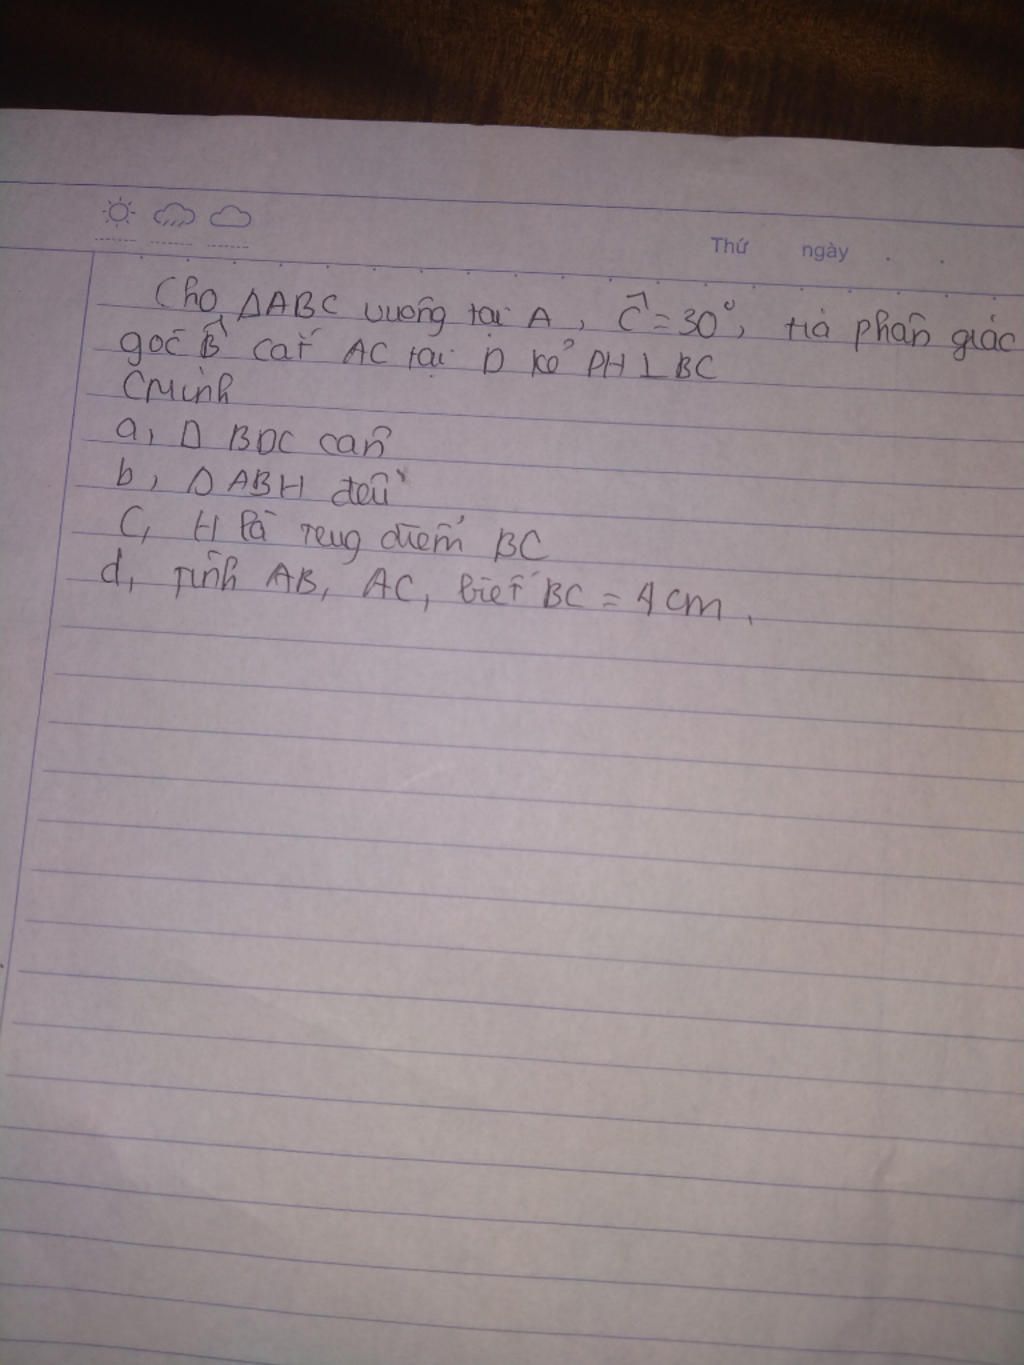 Thứ ngày
Cho ΔABC vuông tại A, Ĉ = 30°, tia phân giác
góc B̂ cắt AC tại D kẻ DH ⊥ BC
CMinh
a, Δ BDC cân
b, Δ ABH đều
C, H là trung điểm BC
d, Tính AB, AC, biết BC = 4 cm.